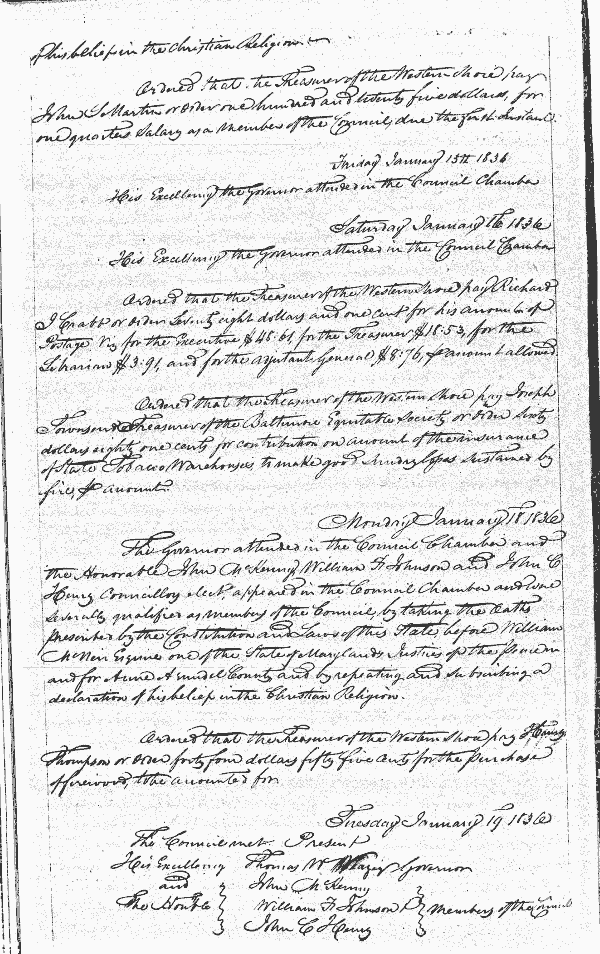 of his belief in the Christian Religion.
Ordered that the Treasurer of the Western Shore pay
John S Martin or order one hundred and twenty five dollars, for
one quarters Salary as a member of the Council, due the first Instant.
Friday January 15th 1836
His Excellency the Governor attended in the Council Chamber
Saturday January 16 1836
His Excellency the Governor attended in the Council Chamber
Ordered that the Treasurer of the Western Shore pay Richard
I Crabb or order Seventy eight dollars and one cent for his amount of
Postage Viz, for the Executive $48.61, for the Treasurer $18.53, for the
Librarian $3.91, and for the adjutant General $8.76, amount allowed
Ordered that the Treasurer of the Western Shore pay Joseph
Townsend Treasurer of the Baltimore Equitable Society or order Sixty
dollars eighty one cents for contribution on amount of the insurance
of State Tobacco Warehouses to make good sundry losses sustained by
fire, amount.
Monday January 18 1836
The Governor attended in the Council Chamber and
the Honorable John McKenny William F Johnson and John C
Henry Councillors elect, appeared in the Council Chamber and were
Severally qualified as members of the Council, by taking the Oaths
prescribed by the Constitution and Laws of this State, before William
McNeir Esquire one of the State of Marylands Justices of the Peace in
and for Anne Arundel County and by repeating and subscribing a
declaration of his belief in the Christian Religion.
Ordered that the Treasurer of the Western Shore pay Henry
Thompson or order forty four dollars fifty five Cents for the purchase
of firewood, to be accounted for
Tuesday January 19 1836
The Council met. Present
His Excellency Thomas W Veazey Governor
and John McKenny
The Honble William F Johnson Members of the Council
John C Henry